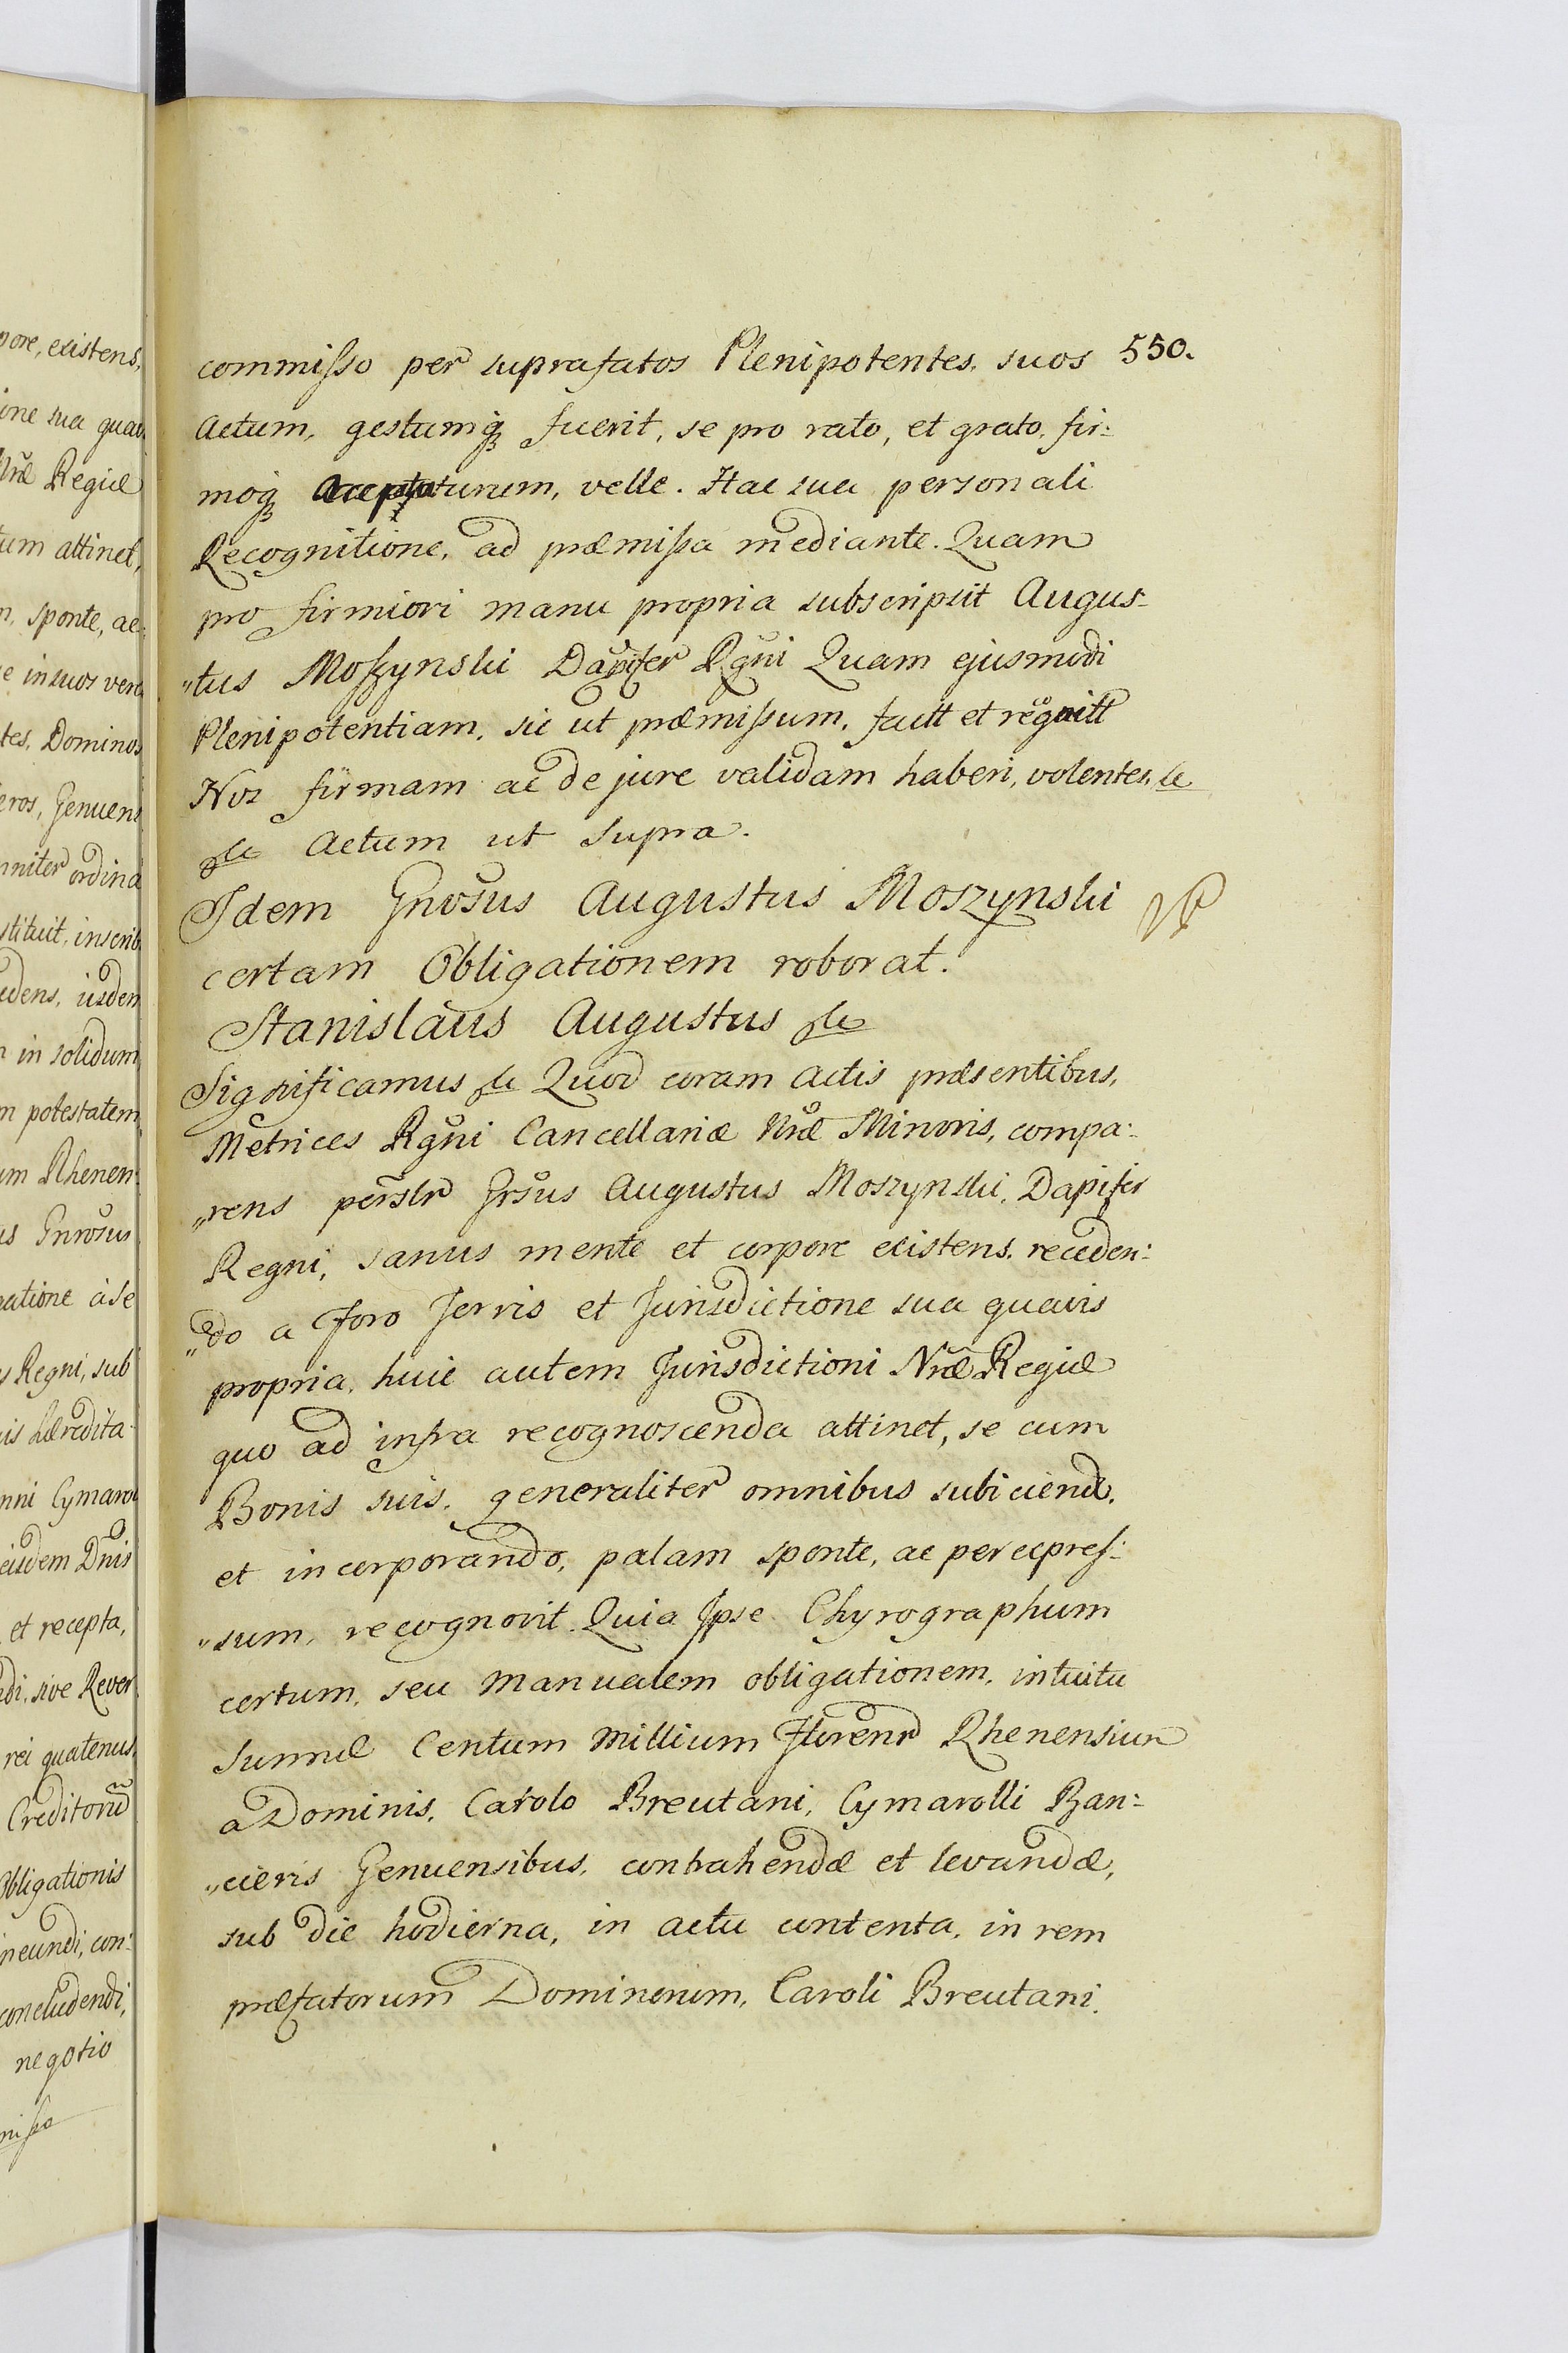 pore, existens,
ione sua quavi
Nrae Regiae
tum attinet,
n, sponte, ac
e in suos vero
tes, Dominos
eros, Genuens
nniter ordina
stituit, inscrib
edens, iisdem
n in solidum
m potestatem
um Rhenen:
us Gnrosus
natione à se
y Regni, sub
is haeredita
nni Cymaro
eisdem Dnis
et recepta,
ndi, sive Rever
rei quatenus
Creditorũ
Obligationis
ineundi, con:
concludendi,
negotio
misso
550.
commisso per suprafatos Plenipotentes, suos
actum, gestumq3 fuerit, se pro rato, et grato, fir:
moq3 acceptaturum, velle. Hac sua personali
Recognitione, ad praemissa mediante. Quam
pro firmiori manu propria subscripsit Augus-
„tus Moszynski Dapifer Rgni Quam ejusmodi
Plenipotentiam, sic ut praemissum, factt et regnitt
Nos firmam ac de jure validam haberi, volentes, &c
&c Actum ut supra.
Idem Gnosus Augustus Moszynski
certam Obligationem roborat.
Stanislaus Augustus &c
Significamus &c Quod coram Actis praesentibus,
Metrices Rgni Cancellariae Nrae Minoris, compa:
„rens perslr Grsus Augustus Moszynski, Dapifer
Regni, sanus mente et corpore existens, receden:
„do a Foro Jervis et Jurisdictione sua quavis
propria, huic autem Jurisdictioni Nrae Regiae
quo ad infra recognoscenda attinet, se cum
Bonis suis, generaliter omnibus subiciend,
et incorporando, palam sponte, ac per expres:
„sum, recognovit. Quia Ipse Chyrographum
certum, seu Manualem obligationem, intuitu
Summae Centum Millium Florenr Rhenensium
a Dominis, Carolo Breutani, Cymarolli Ban:
„cieris Genuensibus, contrahendae et levandae,
sub die hodierna, in actu contenta, in rem
praefatorum Dominorum, Caroli Breutani,